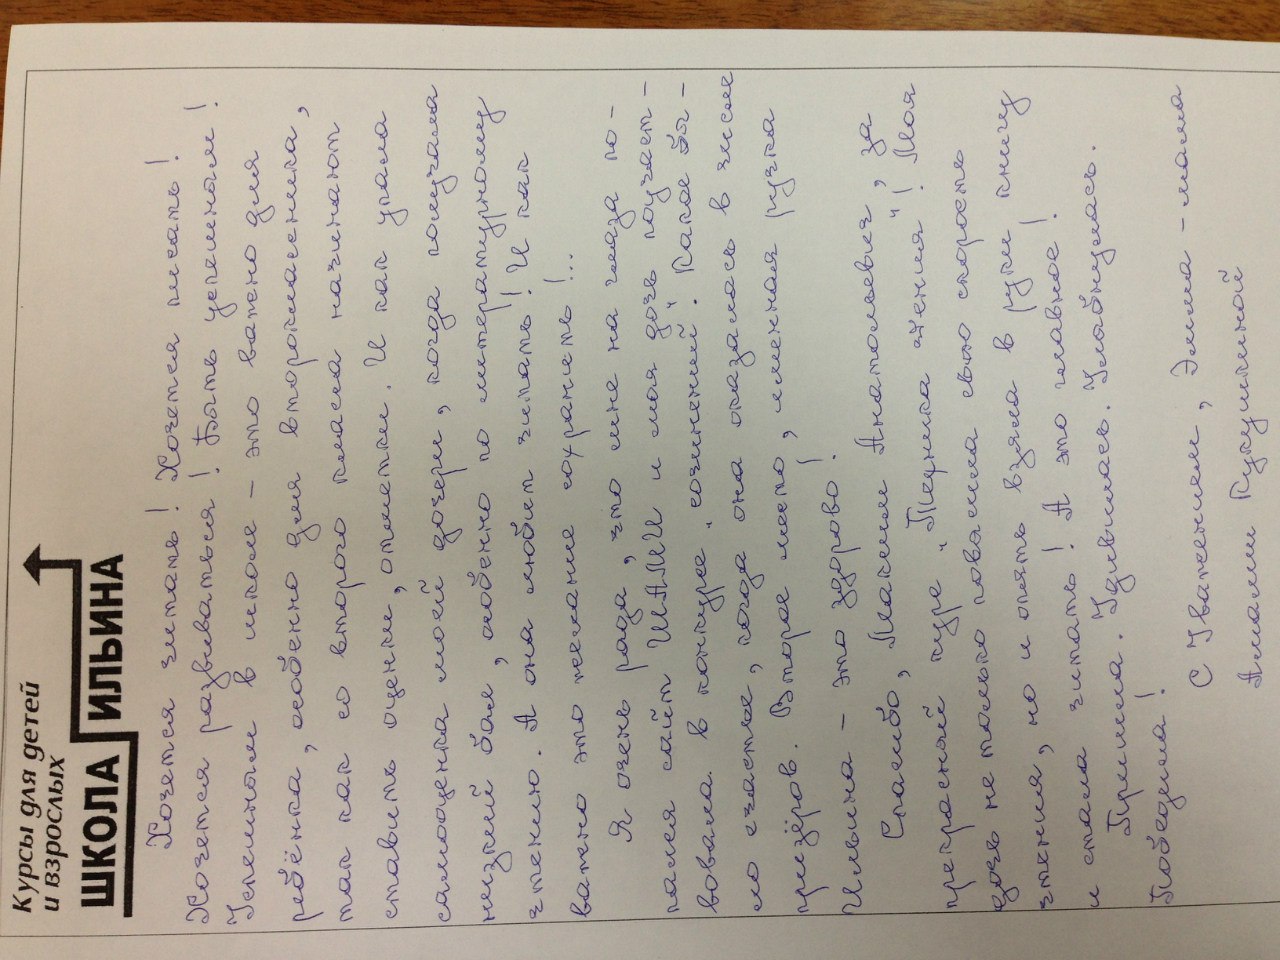 Курсы для детей
и взрослых
ШКОЛА ИЛЬИНА
Хочется читать! Хочется писать!
Хочется развиваться! Быть успешным!
Успешным в школе – это важно для
ребёнка, особенно для второклассника,
так как со второго класса начинают
ставить оценки, отметки. И как упала
самооценка моей дочери, когда получала
низкий бал, особенно по литературному
чтению. А она любит читать! И как
важно это желание сохранить!...
Я очень рада, что мне на глаза по-
пался сайт ШАМИ и моя дочь поучаст-
вовала в конкурсе "сочинений". Какое бы-
ло счастье, когда она оказалась в числе
призёров. Второе место, именная ручка
Ильина – это здорово!
Спасибо, Максим Анатольевич, за
прекрасный курс "Техника чтения"! Моя
дочь не только повысила свою скорость
чтения, но и опять взяла в руки книгу
и стала читать! А это главное!
Пришла. Удивилась. Улыбнулась.
Победила!
С Уважением, Элина – мама
Амалии Кукушкиной